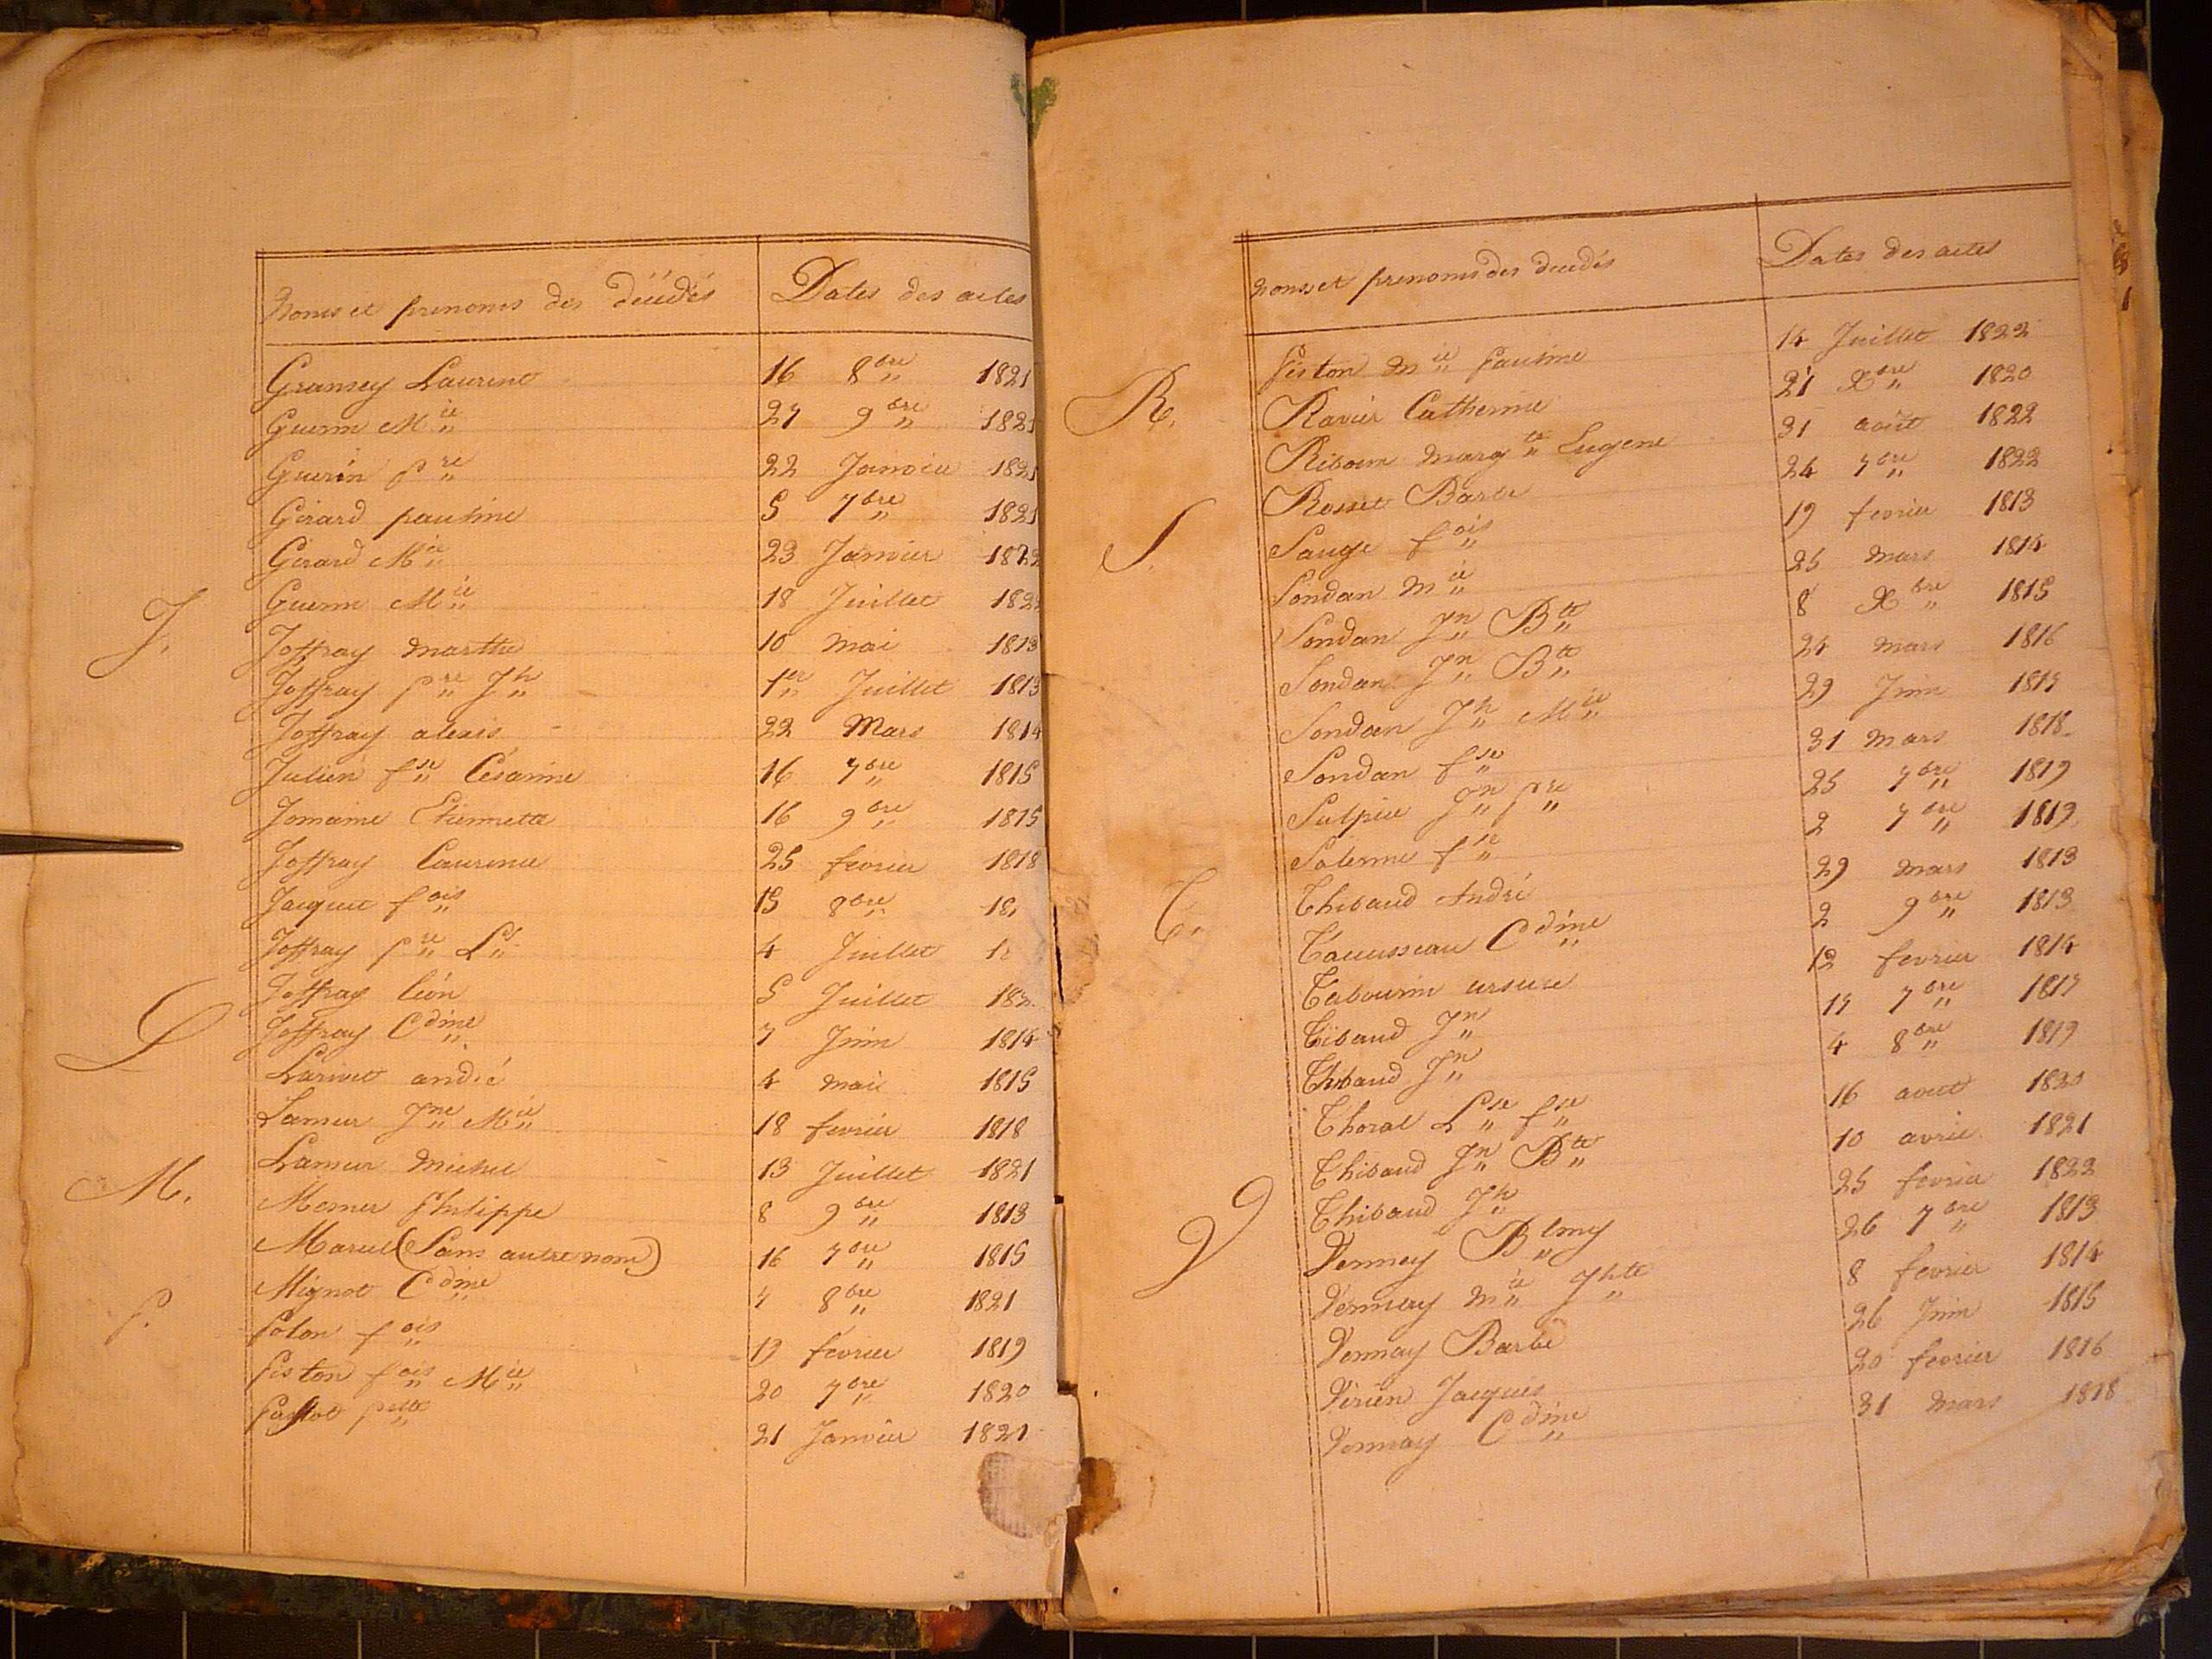 Noms et prenoms des décédés Dates des actes
Gransey Laurent 16 8bre 1821
Guerin Mie 27 9bre 1821
Guerin pre 22 Janvier 1821
Girard pauline 5 7bre 1821
Girard Mie 23 Janvier 1822
Guerin Mie 18 Juillet 1822
J. Joffray marthe 10 mai 1813
Joffray pre Jh 1er Juillet 1813
Joffray alexis 22 Mars 1814
Julien fse Césarine 16 7bre 1815
Jomaine Etiennette 16 9bre 1815
Joffray Laurence 25 fevrier 1818
Jacquet fois 15 8bre 18
Joffray pre Ls 4 Juillet
Joffray léon 5 Juillet 182
L Joffray Cdine 7 Juin 1814
Larivet andré 4 mai 1815
Lameur Jne Mie 18 fevrier 1818
Lameur Michel 13 Juillet 1821
M. Mesner Philippe 8 9bre 1813
Marcel (Sans autre nom) 16 7bre 1815
Mignot Cdine 7 8bre 1821
P. Polon fois 13 fevrier 1819
Piston fois Mie 20 7bre 1820
pette 21 Janvier 1821
Noms et prenoms des decedés Dates des actes
Piston mie Pauline 14 Juillet 1822
R. Ravier Catherine 21 Xbre 1820
Riboun margte Eugene 31 août 1822
Rosset Barbe 24 7bre 1822
S. Sauge fois 19 fevrier 1813
Sondan mie 25 mars 1814
Sondan Jn Btte 8 Xbre 1815
Sondan Jn Btte 24 mars 1816
Sondan Jh Mie 29 Juin 1817
Sondan fse 31 mars 1818
Sulpice Jn pre 25 7bre 1819
Salerne fse 2 7bre 1819
T. Thibaud André 29 mars 1813
Cdine 2 9bre 1813
Tabourin ursule 12 fevrier 1814
Tibaud Jn 17 7bre 1817
Thibaud Jn 4 8bre 1819
Thoral Lse fse 16 aout 1820
Thibaud Jn Btte 10 avril 1821
Thibaud Jh 25 fevrier 1822
V Venney Blmy 26 7bre 1813
Vennay mie Jhtte 8 fevrier 1814
Vennay Barbe 26 Juin 1815
Virien Jacques 20 fevrier 1816
Vennay Cdine 31 mars 1818